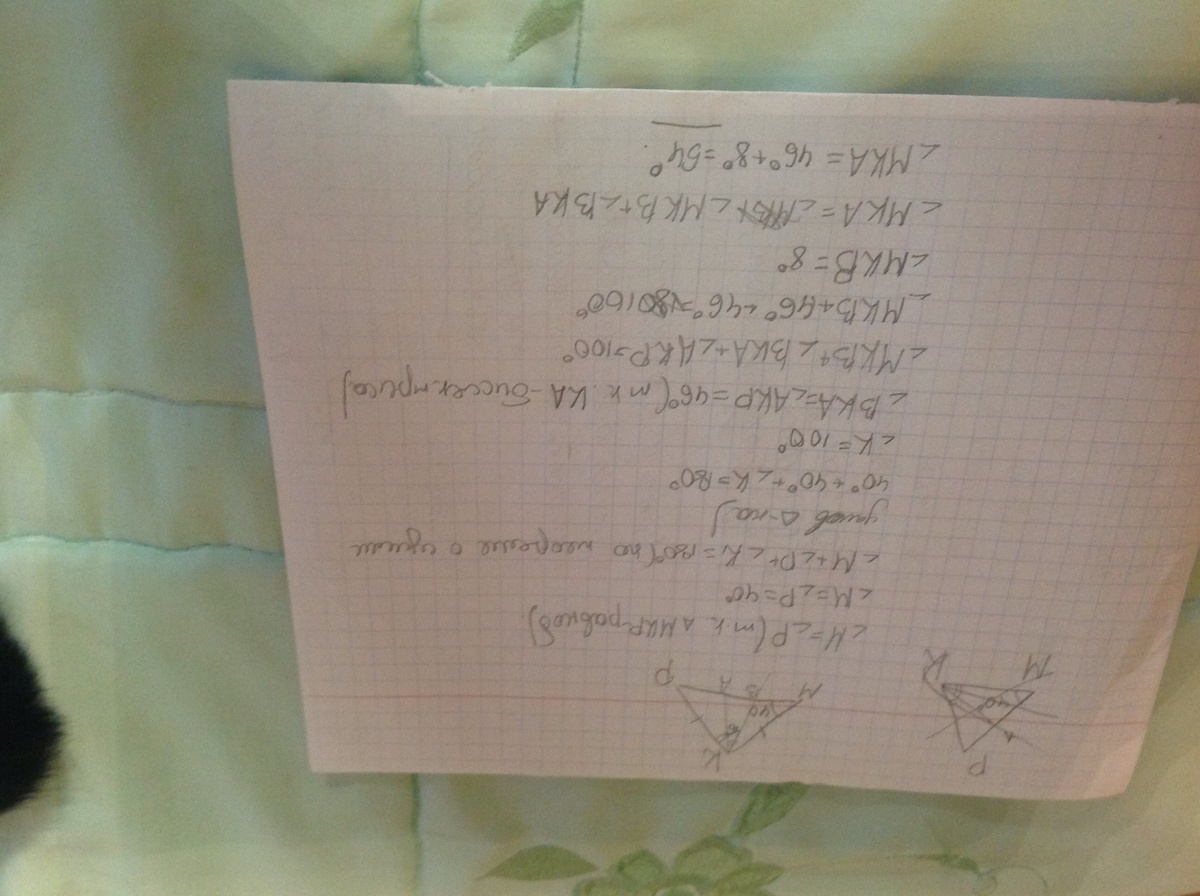 P
K
40°
A
M
K
40°
M
B
A
P
∠M=∠P (т.к. ΔMKP-равноб)
∠M=∠P=40°
∠M+∠P+∠K=180° (по теореме о сумме
углов Δ-ка)
40°+40°+∠K=180°
∠K=100°
∠BKA=∠AKP=46° (т.к. KA-биссектриса)
∠MKB+∠BKA+∠AKP=100°
∠MKB+46°+46°=100°
∠MKB=8°
∠MKA=∠MKB+∠BKA
∠MKA=46°+8°=54°.